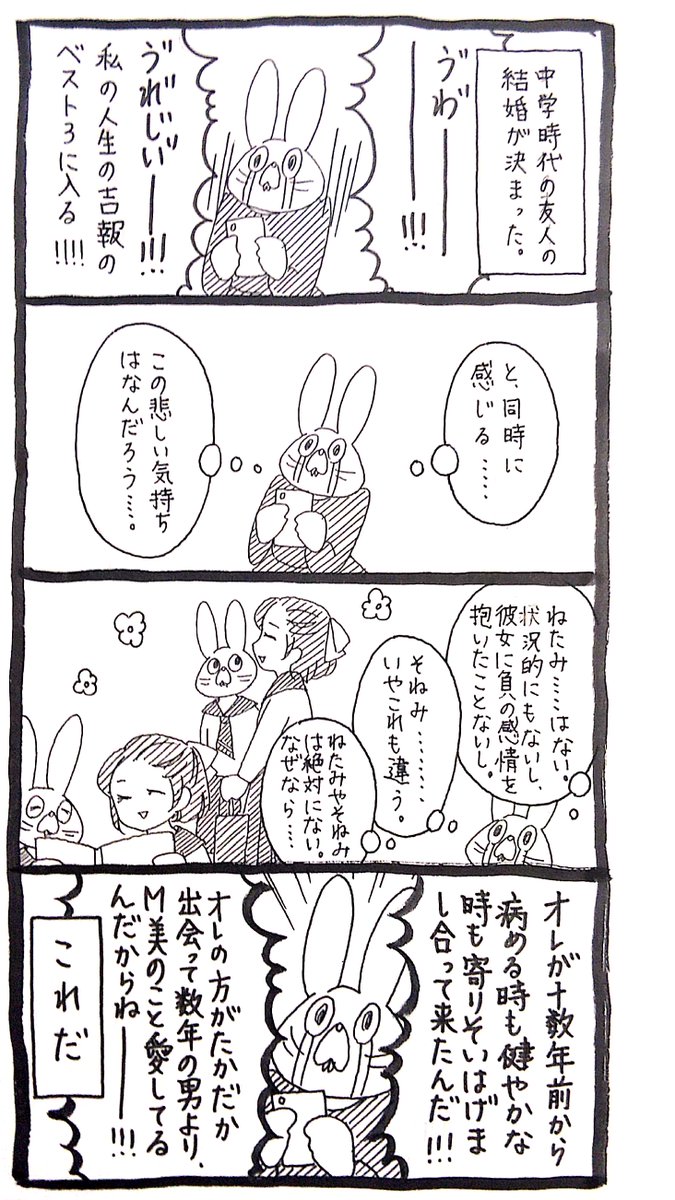 中学時代の友人の
結婚が決まった。
ゔわ゛ーーー!!!
ゔれ゛じい゛ーーー!!!
私の人生の吉報の
ベスト3に入る!!!!
と、同時に
感じる……
この悲しい気持ち
はなんだろう…。
ねたみ……はない。
状況的にもないし、
彼女に負の感情を
抱いたことないし。
そねみ………
いやこれも違う。
ねたみやそねみ
は絶対にない。
なぜなら……
オレが十数年前から
病める時も健やかな
時も寄りそいはげま
し合って来たんだ!!!
オレの方がたかだか
出会って数年の男より、
M美のこと愛してる
んだからね━━━!!!
これだ